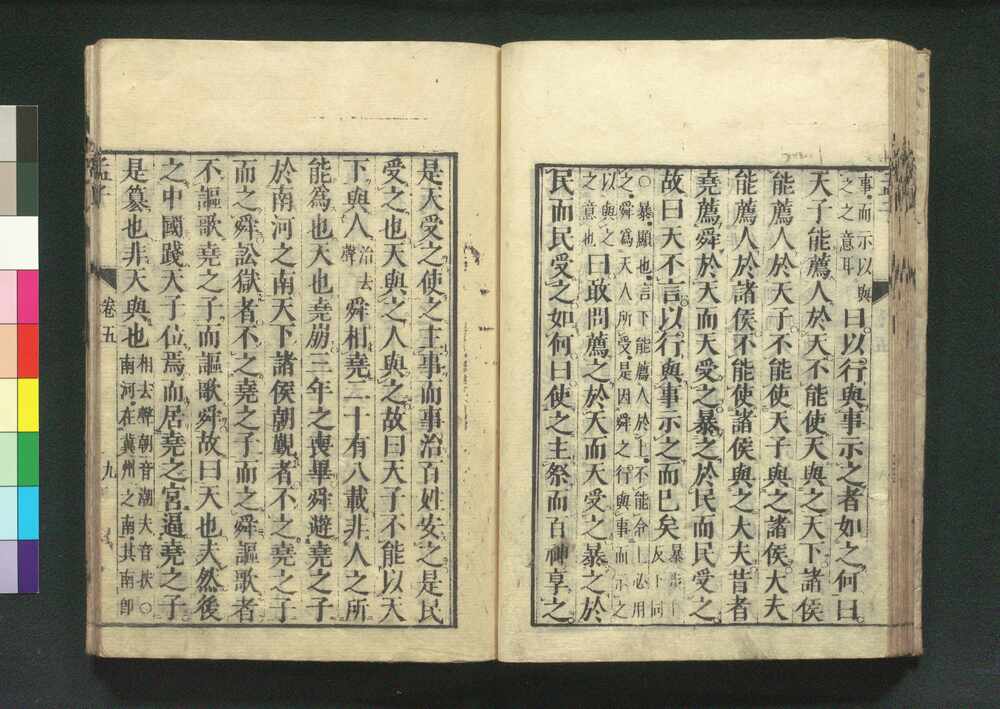 事而示以與
之之意耳
曰以行與事示之者如之何曰
天子能薦人於天不能使天與之天下諸侯
能薦人於天子不能使天子與之諸侯大夫
能薦人於諸侯不能使諸侯與之大夫昔者
堯薦舜於天而天受之暴之於民而民受之
故曰天不言以行與事示之而已矣
暴步卜
反下同
○暴顯也言下能薦人於上不能令上必用
之舜為天人所受是因舜之行與事而示之
以與之
之意也
曰敢問薦之於天而天受之暴之於
民而民受之如何曰使之主祭而百神享之
是天受之使之主事而事治百姓安之是民
受之也天與之人與之故曰天子不能以天
下與人
治去
聲
舜相堯二十有八載非人之所
能為也天也堯崩三年之喪畢舜避堯之子
於南河之南天下諸侯朝覲者不之堯之子
而之舜訟獄者不之堯之子而之舜謳歌者
不謳歌堯之子而謳歌舜故曰天也夫然後
之中國踐天子位焉而居堯之宮逼堯之子
是篡也非天與也
相去聲朝音潮夫音扶○
南河在冀州之南其南即
孟子
卷五
九